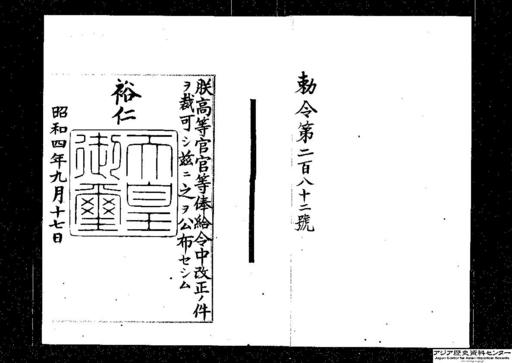 勅令第二百八十二號
朕高等官官等俸給令中改正ノ件
ヲ裁可シ玆ニ之ヲ公布セシム
裕仁
天皇
御璽
昭和四年九月十七日
アジア歴史資料センター
Japan Center for Asian Historical Records